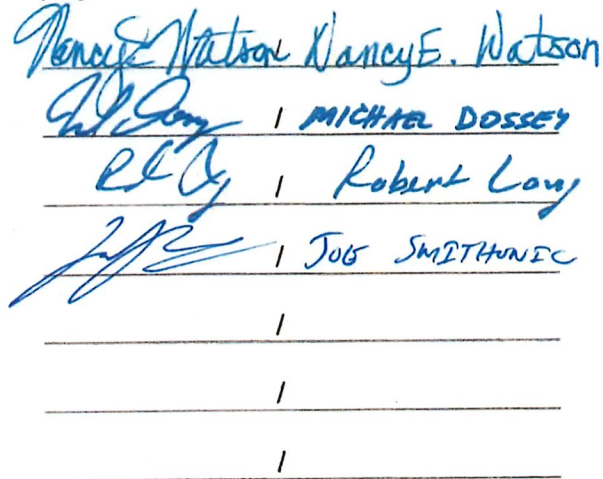 Nancy E Watson / Nancy E. Watson
/ MICHAEL DOSSEY
/ Robert Long
/ JOE SMITHONIC
/
/
/